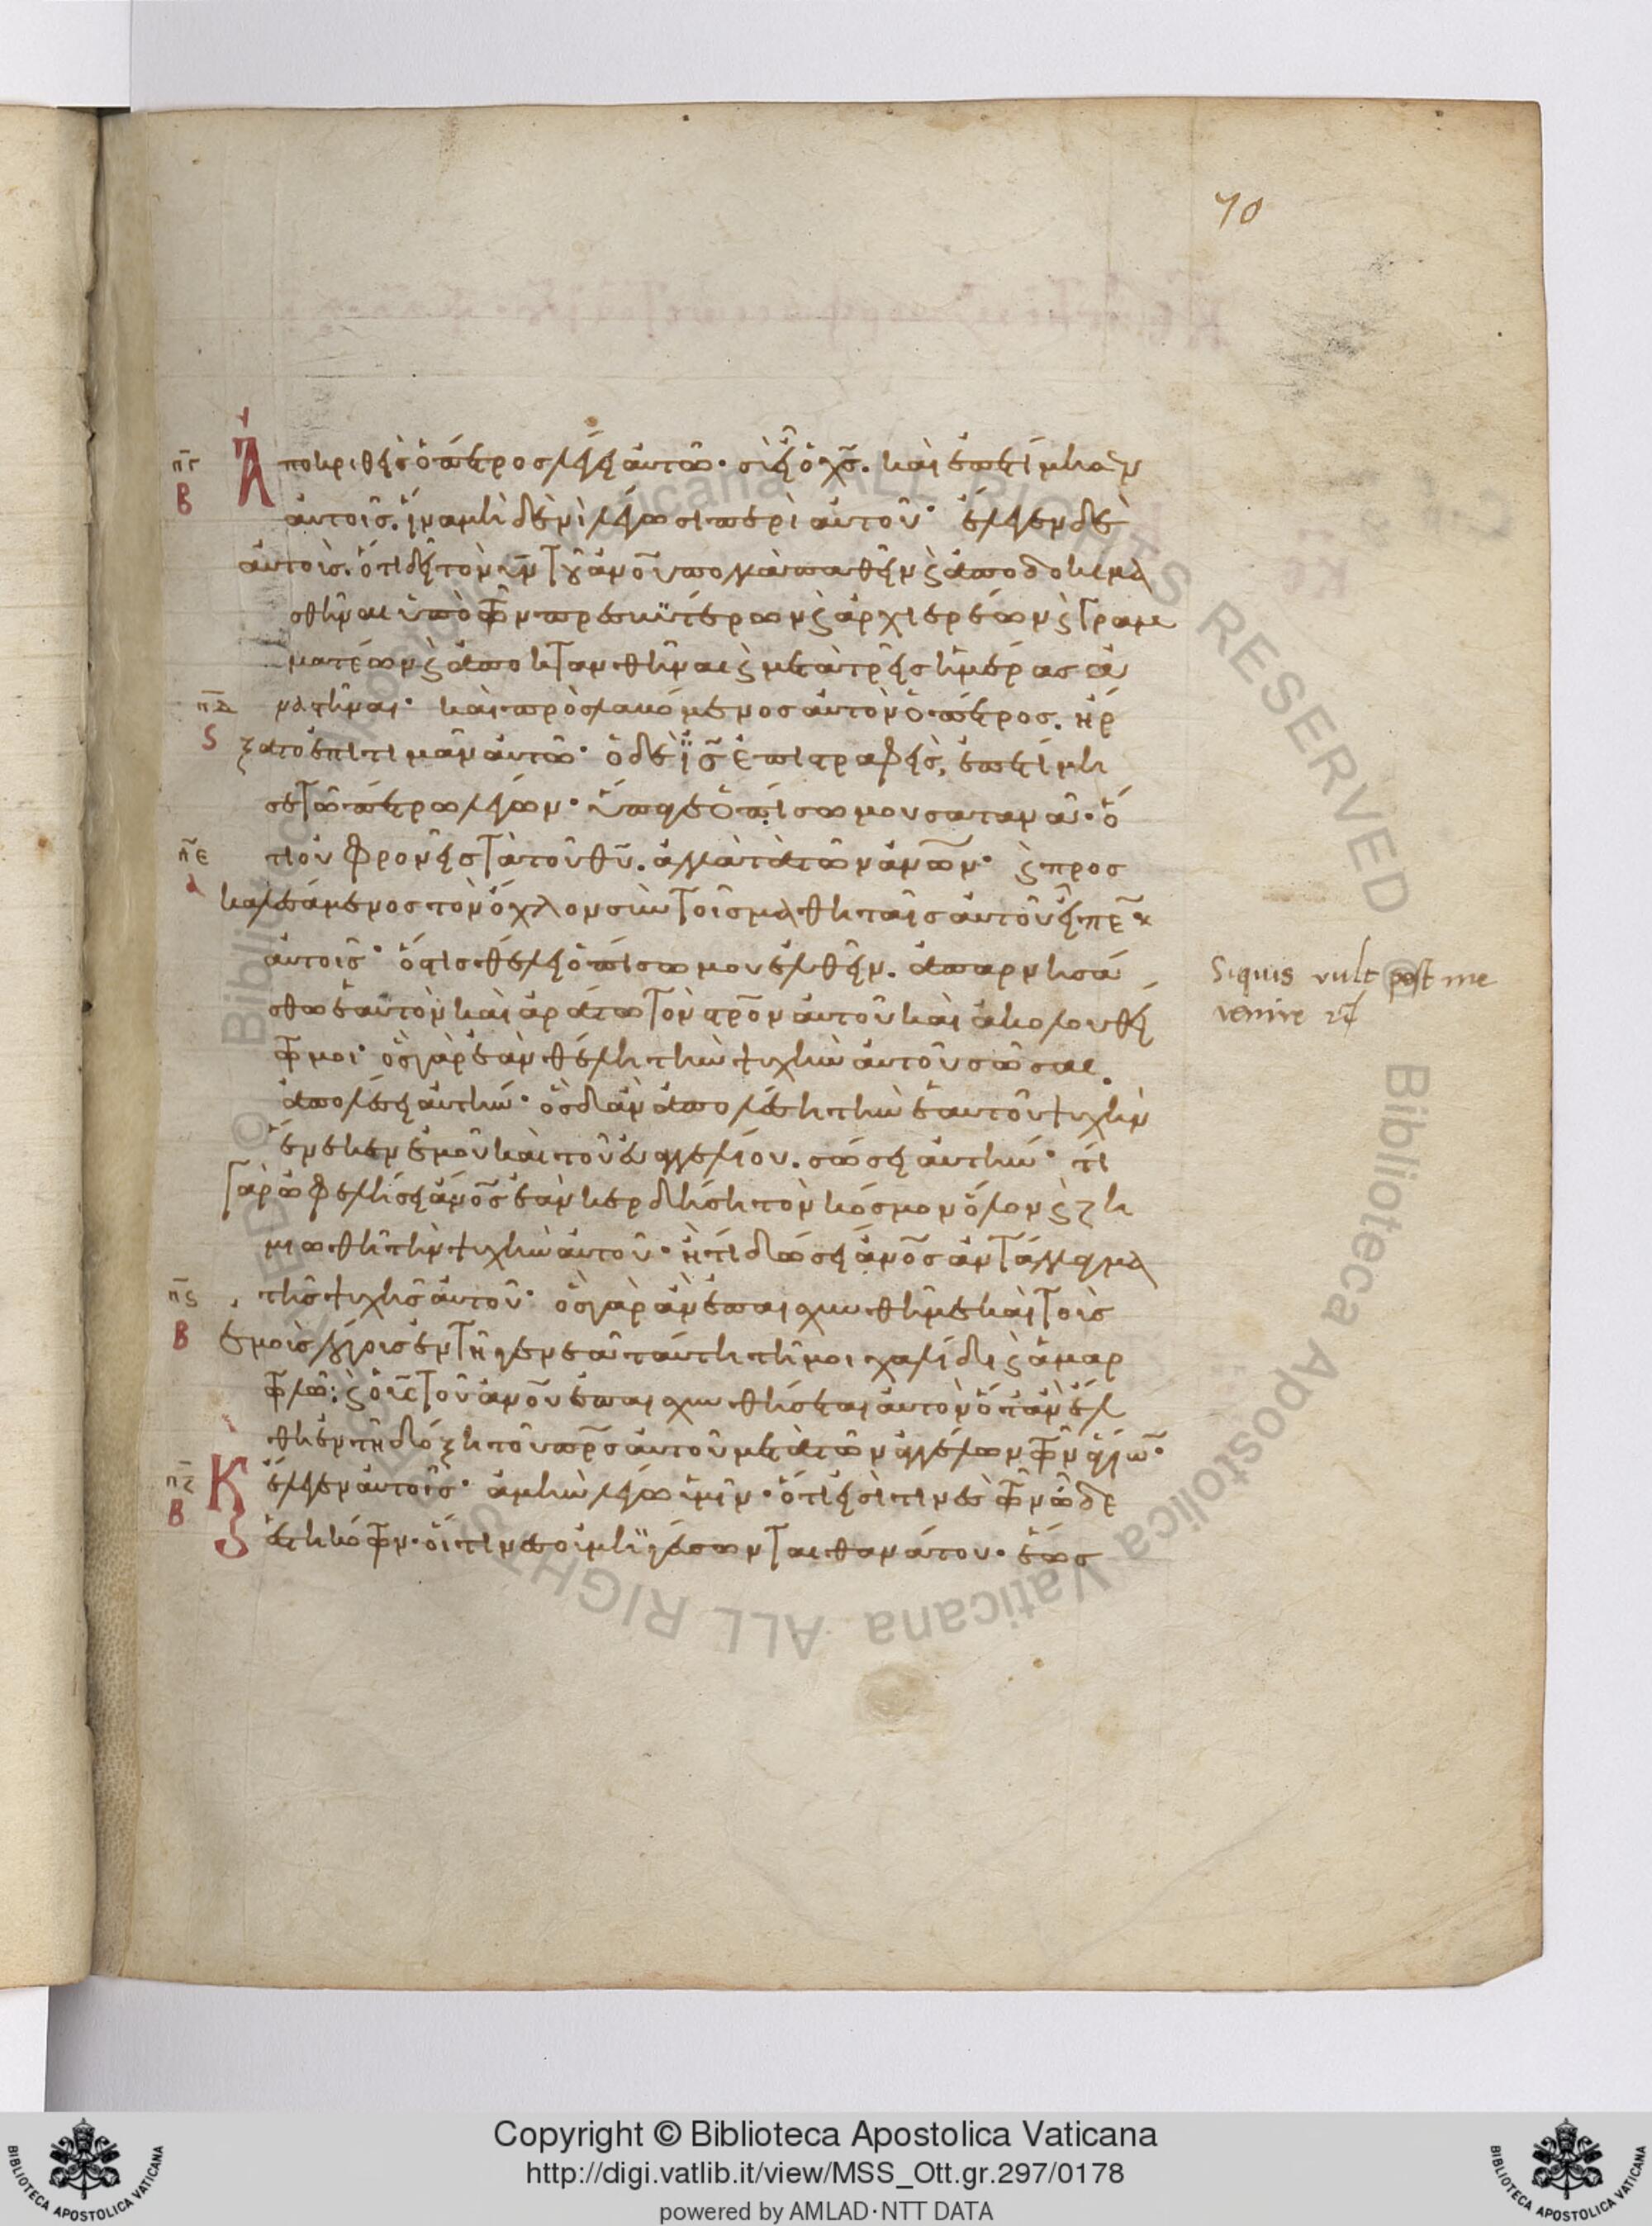 70
πγ
Β
Ἀποκριθεὶς ὁ πέτρος λέγει αὐτῶ· σὺ εἶ ὁ χς. καὶ ἐπετίμησεν
αὐτοῖς. ἵνα μὴ δενὶ λέγωσι περὶ αὐτοῦ·
αὐτοῖς. ὅτι δεῖ τὸν υν τοῦ ανου πολλὰ παθεῖν ϗ ἀποδοκιμα
σθῆναι ὑπὸ τῶν πρεσβυτέρων ϗ ἀρχιερέων ϗ γραμ
ματέων ϗ ἀποκτανθῆναι ϗ μετὰ τρεῖς ἡμέρας ἀ
πδ
ναστῆναι· καὶ προσλαβόμενος αὐτὸν ὁ πέτρος. ἤρ
ς
ξατο ἐπιτιμᾶν αὐτῶ· ὁ δὲ ις ἐπιστραφεὶς, ἐπετίμη
σε τῶ πέτρω λέγων· ὕπαγε ὀπίσω μου σατανᾶ· ὅ
πε
τι οὐ φρονεῖς τὰ τοῦ θυ. ἀλλὰ τὰ τῶν ανων· ϗ προσ
α
καλεσάμενος τὸν ὄχλον σὺν τοῖς μαθηταῖς αὐτοῦ εἶπεν
αὐτοῖς· ὅστις θέλει ὀπίσω μου ἐλθεῖν. ἀπαρνησά
σθω ἑαυτὸν καὶ ἀράτω τὸν στρον αὐτοῦ καὶ ἀκολουθεί
τω μοι· ὃς γὰρ ἐὰν θέλη τὴν ψυχὴν αὐτοῦ σῶσαι.
ἀπολέσει αὐτήν· ὃς δ' ἂν ἀπολέση τὴν ἑαυτοῦ ψυχὴν
ἕνεκεν ἐμοῦ καὶ τοῦ εὐαγγελίου. σώσει αὐτήν· τί
γὰρ ὠφελήσει ανος ἐὰν κερδήση τὸν κόσμον ὅλον ϗ ζη
μιωθῆ τὴν ψυχὴν αὐτοῦ· ἢ τί δώσει ανος ἀντάλλαγμα
πς
τῆς ψυχῆς αὐτοῦ· ὃς γὰρ ἂν ἐπαισχυνθῆ με καὶ τοὺς
Β
ἐμοὺς λόγους ἐν τῆ γενεᾶ ταύτη τῆ μοιχαλίδι ϗ ἁμαρ
τωλῶ: ϗ ὁ υς τοῦ ανου ἐπαισχυνθήσεται αὐτὸν ὅταν ἔλ
θη ἐν τῆ δόξη τοῦ πρς αὐτοῦ μετὰ τῶν ἀγγέλων τῶν ἁγίων·
πζ
Β
Κ ἔλεγεν αὐτοῖς· ἀμὴν λέγω ὑμῖν· ὅτι εἰσί τινες τῶν ὧδε
ἑστηκότων· οἵτινες οὐ μὴ γεύσωνται θανάτου· ἕως
Siquis vult post me
venire
Copyright © Biblioteca Apostolica Vaticana
http://digi.vatlib.it/view/MSS_Ott.gr.297/0178
powered by AMLAD·NTT DATA
BIBLIOTECA APOSTOLICA VATICANA
BIBLIOTECA APOSTOLICA VATICANA